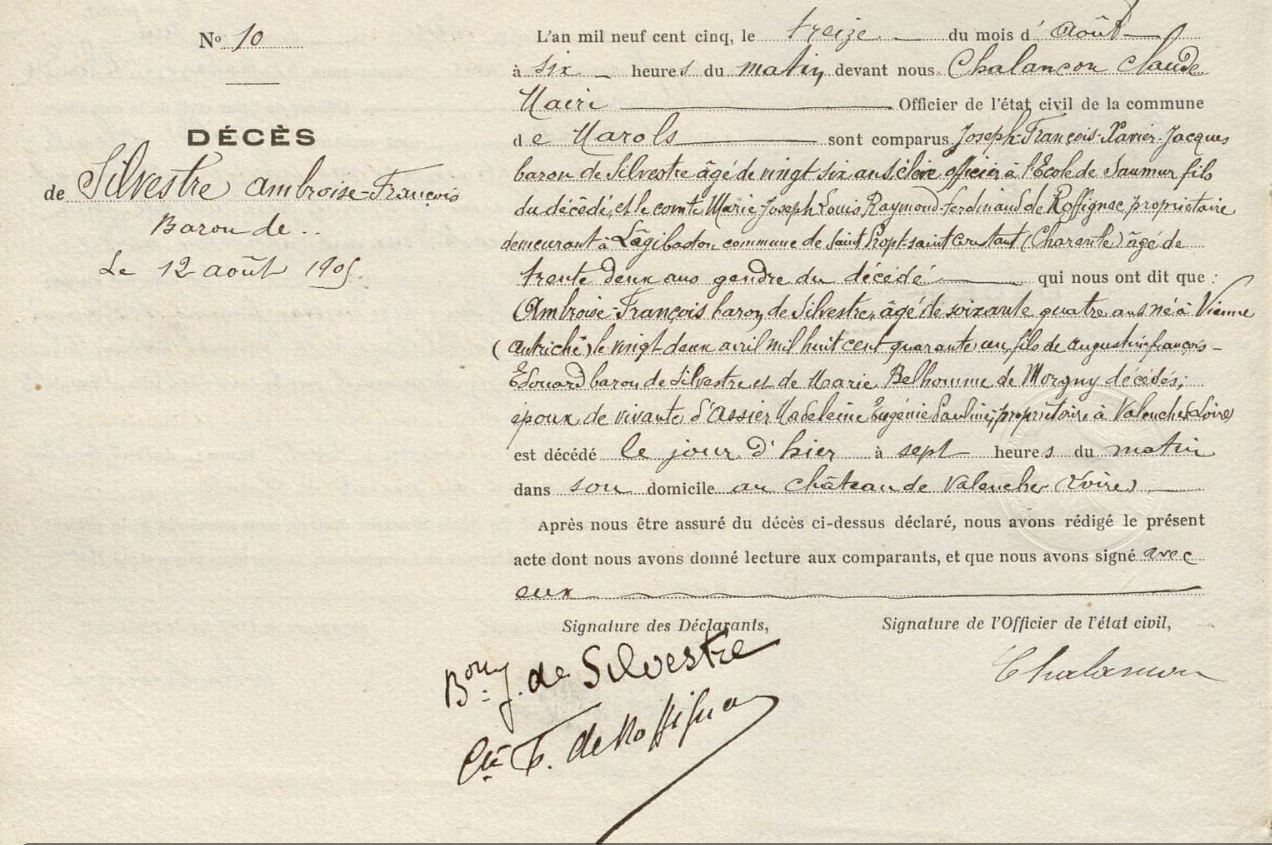 N° 10
DÉCÈS
de Silvestre Ambroise-François
Baron de ..
Le 12 août 1905.
L'an mil neuf cent cinq, le treize du mois d'août
à six heures du matin, devant nous Chalancon Claude
Maire Officier de l'état civil de la commune
de Marols sont comparus Joseph-François-Xavier-Jacques
baron de Silvestre âgé de vingt six ans élève officier à l'Ecole de Saumur fils
du décédé, et le comte Marie-Joseph-Louis Raymond-Ferdinand de Roffignac propriétaire
demeurant à Lâgibaston commune de Saint (Charente) âgé de
trente deux ans gendre du décédé qui nous ont dit que :
Ambroise-François baron de Silvestre, âgé de soixante quatre ans né à Vienne
(Autriche) le vingt deux avril mil huit cent quarante un, fils de Augustin-françois-
Edouard baron de Silvestre et de Marie Belhomme de Morgny décédés;
époux de vivante d'Assier Madeleine Eugénie Pauline, propriétaire à Valenches (Loire)
est décédé le jour d'hier à sept heures du matin
dans son domicile au château de Valenches (Loire)
Après nous être assuré du décès ci-dessus déclaré, nous avons rédigé le présent
acte dont nous avons donné lecture aux comparants, et que nous avons signé avec
eux
Signature des Déclarants,
Signature de l'Officier de l'état civil,
Chalancon
Bon J. de Silvestre
Cte F. de Roffignac